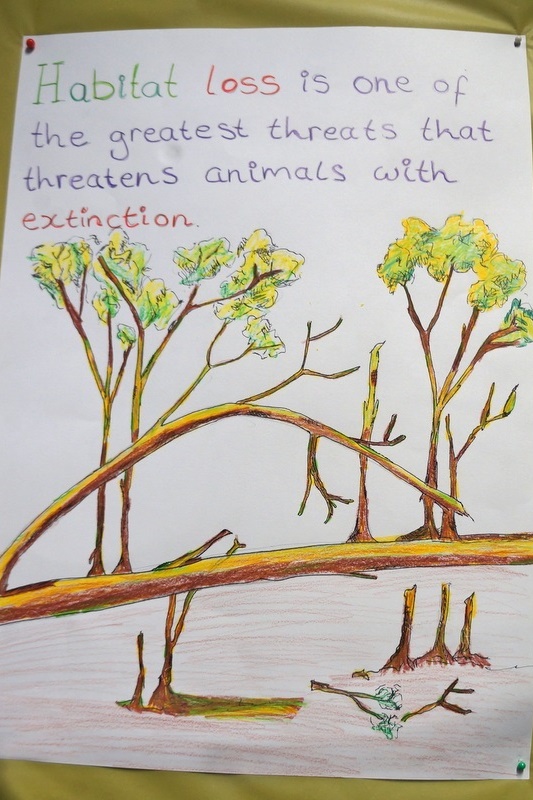 Habitat loss is one of
the greatest threats that
threatens animals with
extinction.